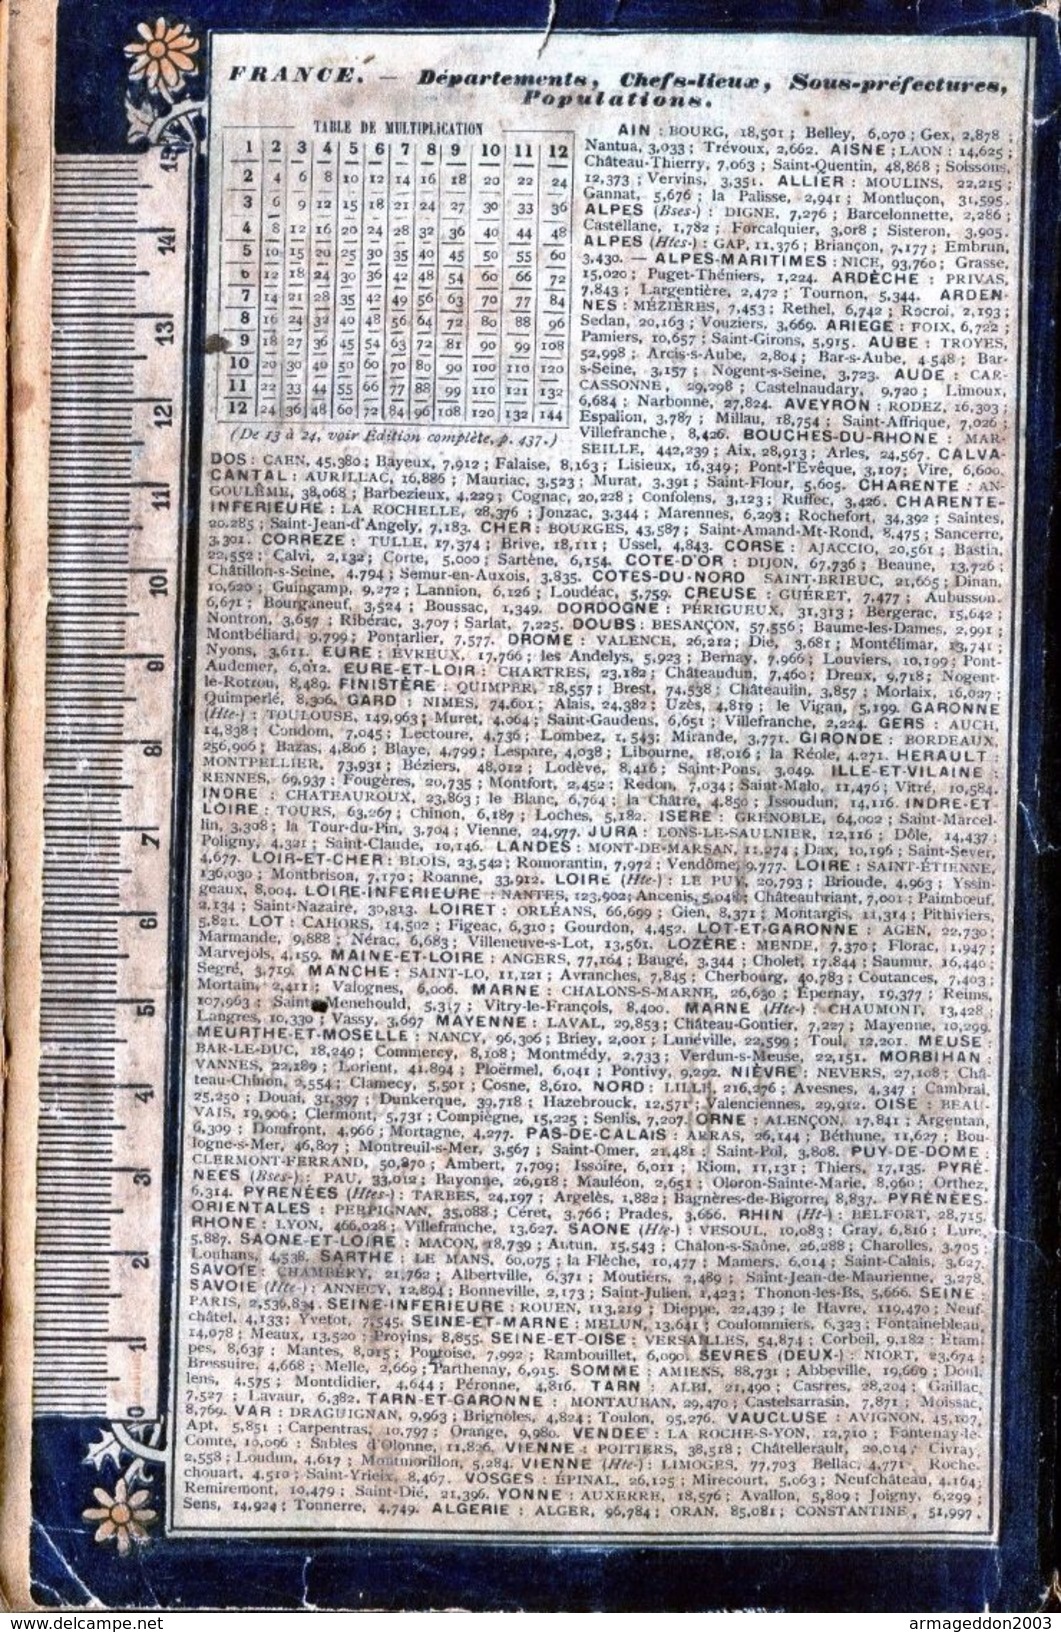 FRANCE. — Départements, Chefs-lieux, Sous-préfectures,
Populations.
TABLE DE MULTIPLICATION
1 2 3 4 5 6 7 8 9 10 11 12
2 4 6 8 10 12 14 16 18 20 22 24
3 6 9 12 15 18 21 24 27 30 33 36
4 8 12 16 20 24 28 32 36 40 44 48
5 10 15 20 25 30 35 40 45 50 55 60
6 12 18 24 30 36 42 48 54 60 66 72
7 14 21 28 35 42 49 56 63 70 77 84
8 16 24 32 40 48 56 64 72 80 88 96
9 18 27 36 45 54 63 72 81 90 99 108
10 20 30 40 50 60 70 80 90 100 110 120
11 22 33 44 55 66 77 88 99 110 121 132
12 24 36 48 60 72 84 96 108 120 132 144
(De 13 à 24, voir Édition complète, p. 437.)
AIN : BOURG, 18,501 ; Belley, 6,070 ; Gex, 2,878 ;
Nantua, 3,033 ; Trévoux, 2,662. AISNE : LAON : 14,625 ;
Château-Thierry, 7,063 ; Saint-Quentin, 48,868 ; Soissons,
12,373 ; Vervins, 3,351. ALLIER : MOULINS, 22,215 ;
Gannat, 5,676 ; la Palisse, 2,941 ; Montluçon, 31,595.
ALPES (Bses-) : DIGNE, 7,276 ; Barcelonnette, 2,286 ;
Castellane, 1,782 ; Forcalquier, 3,018 ; Sisteron, 3,905.
ALPES (Htes-) : GAP, 11,376 ; Briançon, 7,177 ; Embrun,
3,430. — ALPES-MARITIMES : NICE, 93,760 ; Grasse,
15,020 ; Puget-Théniers, 1,224. ARDÈCHE : PRIVAS,
7,843 ; Largentière, 2,472 ; Tournon, 5,344. ARDEN-
NES : MÉZIÈRES, 7,453 ; Rethel, 6,742 ; Rocroi, 2,193 ;
Sedan, 20,163 ; Vouziers, 3,669. ARIEGE : FOIX, 6,722 ;
Pamiers, 10,657 ; Saint-Girons, 5,915. AUBE : TROYES,
52,998 ; Arcis-s-Aube, 2,804 ; Bar-s-Aube, 4,548 ; Bar-
s-Seine, 3,157 ; Nogent-s-Seine, 3,723. AUDE : CAR-
CASSONNE, 29,298 ; Castelnaudary, 9,720 ; Limoux,
6,684 ; Narbonne, 27,824. AVEYRON : RODEZ, 16,303 ;
Espalion, 3,787 ; Millau, 18,754 ; Saint-Affrique, 7,026 ;
Villefranche, 8,426. BOUCHES-DU-RHONE : MAR-
SEILLE, 442,239 ; Aix, 28,913 ; Arles, 24,567. CALVA-
DOS : CAEN, 45,380 ; Bayeux, 7,912 ; Falaise, 8,163 ; Lisieux, 16,349 ; Pont-l'Evêque, 3,107 ; Vire, 6,600.
CANTAL : AURILLAC, 16,886 ; Mauriac, 3,523 ; Murat, 3,391 ; Saint-Flour, 5,605. CHARENTE : AN-
GOULÊME, 38,068 ; Barbezieux, 4,229 ; Cognac, 20,228 ; Confolens, 3,123 ; Ruffec, 3,426. CHARENTE-
INFERIEURE : LA ROCHELLE, 28,376 ; Jonzac, 3,344 ; Marennes, 6,293 ; Rochefort, 34,392 ; Saintes,
20,285 ; Saint-Jean-d'Angely, 7,183. CHER : BOURGES, 43,587 ; Saint-Amand-Mt-Rond, 8,475 ; Sancerre,
3,301. CORREZE : TULLE, 17,374 ; Brive, 18,111 ; Ussel, 4,843. CORSE : AJACCIO, 20,561 ; Bastia,
22,552 ; Calvi, 2,132 ; Corte, 5,000 ; Sartène, 6,154. COTE-D'OR : DIJON, 67,736 ; Beaune, 13,726 ;
Châtillon-s-Seine, 4,794 ; Semur-en-Auxois, 3,835. COTES-DU-NORD SAINT-BRIEUC, 21,665 ; Dinan,
10,620 ; Guingamp, 9,272 ; Lannion, 6,126 ; Loudéac, 5,759. CREUSE : GUÉRET, 7,477 ; Aubusson,
6,671 ; Bourganeuf, 3,524 ; Boussac, 1,349. DORDOGNE : PÉRIGUEUX, 31,313 ; Bergerac, 15,642 ;
Nontron, 3,657 ; Ribérac, 3,707 ; Sarlat, 7,225. DOUBS : BESANÇON, 57,556 ; Baume-les-Dames, 2,991 ;
Montbéliard, 9,799 ; Pontarlier, 7,577. DROME : VALENCE, 26,212 ; Die, 3,681 ; Montélimar, 13,741 ;
Nyons, 3,611. EURE : ÉVREUX, 17,766 ; les Andelys, 5,923 ; Bernay, 7,966 ; Louviers, 10,199 ; Pont-
Audemer, 6,012. EURE-ET-LOIR : CHARTRES, 23,182 ; Châteaudun, 7,460 ; Dreux, 9,718 ; Nogent-
le-Rotrou, 8,489. FINISTÈRE : QUIMPER, 18,557 ; Brest, 74,538 ; Châteaulin, 3,857 ; Morlaix, 16,027 ;
Quimperlé, 8,306. GARD : NIMES, 74,601 ; Alais, 24,382 ; Uzès, 4,819 ; le Vigan, 5,199. GARONNE
(Hte-) : TOULOUSE, 149,963 ; Muret, 4,064 ; Saint-Gaudens, 6,651 ; Villefranche, 2,224. GERS : AUCH,
14,838 ; Condom, 7,045 ; Lectoure, 4,736 ; Lombez, 1,543 ; Mirande, 3,771. GIRONDE : BORDEAUX,
256,906 ; Bazas, 4,806 ; Blaye, 4,799 ; Lespare, 4,038 ; Libourne, 18,016 ; la Réole, 4,271. HERAULT :
MONTPELLIER, 73,931 ; Béziers, 48,012 ; Lodève, 8,416 ; Saint-Pons, 3,049. ILLE-ET-VILAINE :
RENNES, 69,937 ; Fougères, 20,735 ; Montfort, 2,452 ; Redon, 7,034 ; Saint-Malo, 11,476 ; Vitré, 10,584.
INDRE : CHATEAUROUX, 23,863 ; le Blanc, 6,764 ; la Châtre, 4,850 ; Issoudun, 14,116. INDRE-ET-
LOIRE : TOURS, 63,267 ; Chinon, 6,187 ; Loches, 5,182. ISERE : GRENOBLE, 64,002 ; Saint-Marcel-
lin, 3,308 ; la Tour-du-Pin, 3,704 ; Vienne, 24,977. JURA : LONS-LE-SAULNIER, 12,116 ; Dôle, 14,437 ;
Poligny, 4,321 ; Saint-Claude, 10,146. LANDES : MONT-DE-MARSAN, 11,274 ; Dax, 10,196 ; Saint-Sever,
4,677. LOIR-ET-CHER : BLOIS, 23,542 ; Romorantin, 7,972 ; Vendôme, 9,777. LOIRE : SAINT-ÉTIENNE,
136,030 ; Montbrison, 7,170 ; Roanne, 33,912. LOIRE (Hte-) : LE PUY, 20,793 ; Brioude, 4,963 ; Yssin-
geaux, 8,004. LOIRE-INFERIEURE : NANTES, 123,902 ; Ancenis, 5,048 ; Châteaubriant, 7,001 ; Paimbœuf,
2,134 ; Saint-Nazaire, 30,813. LOIRET : ORLÉANS, 66,699 ; Gien, 8,371 ; Montargis, 11,314 ; Pithiviers,
5,821. LOT : CAHORS, 14,502 ; Figeac, 6,310 ; Gourdon, 4,452. LOT-ET-GARONNE : AGEN, 22,730 ;
Marmande, 9,888 ; Nérac, 6,683 ; Villeneuve-s-Lot, 13,561. LOZÈRE : MENDE, 7,370 ; Florac, 1,947 ;
Marvejols, 4,159. MAINE-ET-LOIRE : ANGERS, 77,164 ; Baugé, 3,344 ; Cholet, 17,844 ; Saumur, 16,440 ;
Segré, 3,719. MANCHE : SAINT-LO, 11,121 ; Avranches, 7,845 ; Cherbourg, 40,783 ; Coutances, 7,403 ;
Mortain, 2,411 ; Valognes, 6,006. MARNE : CHALONS-S-MARNE, 26,630 ; Épernay, 19,377 ; Reims,
107,963 ; Sainte-Menehould, 5,317 ; Vitry-le-François, 8,400. MARNE (Hte-) : CHAUMONT, 13,428 ;
Langres, 10,330 ; Vassy, 3,697 MAYENNE : LAVAL, 29,853 ; Château-Gontier, 7,227 ; Mayenne, 10,299.
MEURTHE-ET-MOSELLE : NANCY, 96,306 ; Briey, 2,001 ; Lunéville, 22,599 ; Toul, 12,201. MEUSE :
BAR-LE-DUC, 18,249 ; Commercy, 8,108 ; Montmédy, 2,733 ; Verdun-s-Meuse, 22,151. MORBIHAN :
VANNES, 22,189 ; Lorient, 41,894 ; Ploërmel, 6,041 ; Pontivy, 9,292. NIÈVRE : NEVERS, 27,108 ; Châ-
teau-Chinon, 2,554 ; Clamecy, 5,501 ; Cosne, 8,610. NORD : LILLE, 216,276 ; Avesnes, 4,347 ; Cambrai,
25,250 ; Douai, 31,397 ; Dunkerque, 39,718 ; Hazebrouck, 12,571 ; Valenciennes, 29,912. OISE : BEAU-
VAIS, 19,906 ; Clermont, 5,731 ; Compiègne, 15,225 ; Senlis, 7,207. ORNE : ALENÇON, 17,841 ; Argentan,
6,309 ; Domfront, 4,966 ; Mortagne, 4,277. PAS-DE-CALAIS : ARRAS, 26,144 ; Béthune, 11,627 ; Bou-
logne-s-Mer, 46,807 ; Montreuil-s-Mer, 3,567 ; Saint-Omer, 21,481 ; Saint-Pol, 3,808. PUY-DE-DOME
CLERMONT-FERRAND, 50,870 ; Ambert, 7,709 ; Issoire, 6,011 ; Riom, 11,131 ; Thiers, 17,135. PYRÉ-
NEES (Bses-) : PAU, 33,012 ; Bayonne, 26,918 ; Mauléon, 2,651 ; Oloron-Sainte-Marie, 8,960 ; Orthez,
6,314. PYRENÉES (Htes-) : TARBES, 24,197 ; Argelès, 1,882 ; Bagnères-de-Bigorre, 8,837. PYRÉNÉES-
ORIENTALES : PERPIGNAN, 35,088 ; Céret, 3,766 ; Prades, 3,666. RHIN (Ht-) : BELFORT, 28,715.
RHONE : LYON, 466,028 ; Villefranche, 13,627. SAONE (Hte-) : VESOUL, 10,083 ; Gray, 6,816 ; Lure,
5,887. SAONE-ET-LOIRE : MACON, 18,739 ; Autun, 15,543 ; Chalon-s-Saône, 26,288 ; Charolles, 3,705 ;
Louhans, 4,538. SARTHE : LE MANS, 60,075 ; la Flèche, 10,477 ; Mamers, 6,014 ; Saint-Calais, 3,627.
SAVOIE : CHAMBÉRY, 21,762 ; Albertville, 6,371 ; Moutiers, 2,489 ; Saint-Jean-de-Maurienne, 3,278.
SAVOIE (Hte-) : ANNECY, 12,894 ; Bonneville, 2,173 ; Saint-Julien, 1,423 ; Thonon-les-Bs, 5,666. SEINE :
PARIS, 2,536,834. SEINE-INFERIEURE : ROUEN, 113,219 ; Dieppe, 22,439 ; le Havre, 119,470 ; Neuf-
châtel, 4,133 ; Yvetot, 7,545. SEINE-ET-MARNE : MELUN, 13,641 ; Coulommiers, 6,323 ; Fontainebleau,
14,078 ; Meaux, 13,520 ; Provins, 8,855. SEINE-ET-OISE : VERSAILLES, 54,874 ; Corbeil, 9,182 ; Étam-
pes, 8,637 ; Mantes, 8,015 ; Pontoise, 7,992 ; Rambouillet, 6,090. SEVRES (DEUX-) : NIORT, 23,674 ;
Bressuire, 4,668 ; Melle, 2,669 ; Parthenay, 6,915. SOMME : AMIENS, 88,731 ; Abbeville, 19,669 ; Doul,
lens, 4,575 ; Montdidier, 4,644 ; Péronne, 4,816. TARN : ALBI, 21,490 ; Castres, 28,204 ; Gaillac,
7,527 ; Lavaur, 6,382. TARN-ET-GARONNE : MONTAUBAN, 29,470 ; Castelsarrasin, 7,871 ; Moissac,
8,769. VAR : DRAGUIGNAN, 9,963 ; Brignoles, 4,824 ; Toulon, 95,276. VAUCLUSE : AVIGNON, 45,107,
Apt, 5,851 ; Carpentras, 10,797 ; Orange, 9,980. VENDEE : LA ROCHE-S-YON, 12,710 ; Fontenay-le-
Comte, 10,096 : Sables d'Olonne, 11,826. VIENNE : POITIERS, 38,518 ; Châtellerault, 20,014 ; Civray,
2,558 ; Loudun, 4,617 ; Montmorillon, 5,284. VIENNE (Hte-) : LIMOGES, 77,703 Bellac, 4,771 Roche-
chouart, 4,510 ; Saint-Yrieix, 8,467. VOSGES : ÉPINAL, 26,125 ; Mirecourt, 5,063 ; Neufchâteau, 4,164 ;
Remiremont, 10,479 ; Saint-Dié, 21,396. YONNE : AUXERRE, 18,576 ; Avallon, 5,809 ; Joigny, 6,299 ;
Sens, 14,924 ; Tonnerre, 4,749. ALGERIE : ALGER, 96,784 ; ORAN, 85,081 ; CONSTANTINE, 51,997.
15
14
13
12
11
10
9
8
7
6
5
4
3
2
1
0
www.delcampe.net
armageddon2003